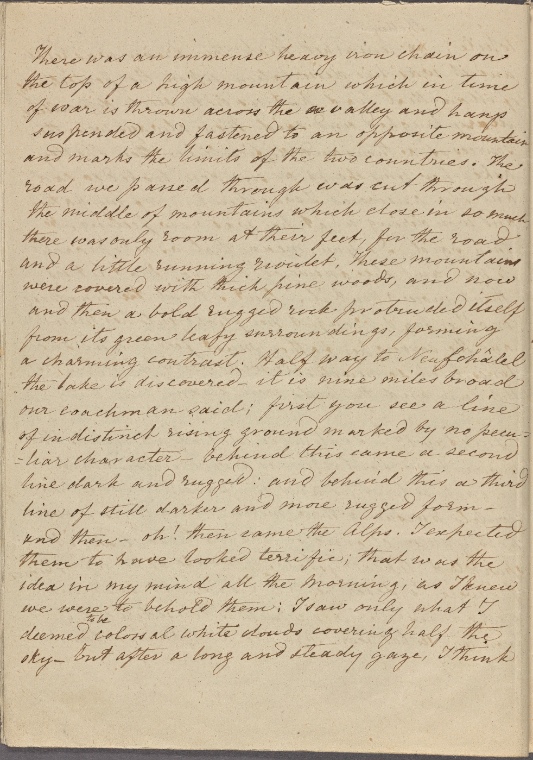 There was an immense heavy iron chain on
the top of a high mountain which in time
of war is thrown across the valley and hangs
suspended and fastened to an opposite mountain
and marks the limits of the two countries. The
road we passed through was cut through
the middle of mountains which close in so much
there was only room at their feet, for the road
and a little running rivulet. These mountains
were covered with thick pine woods, and now
and then a bold rugged rock protruded itself
from its green leafy surroundings, forming
a charming contrast. Half way to Neufchâlel
the lake is discovered – it is nine miles broad
our coachman said; first you see a line
of indistinct rising ground marked by no pecu=
=liar character – behind this came a second
line dark and rugged: and behind this a third
line of still darker and more rugged form –
and then – oh! then came the Alps. I expected
them to have looked terrific; that was the
idea in my mind all the morning, as I knew
we were to behold them; I saw only what I
deemed to be colossal white clouds covering half the
sky – but after a long and steady gaze, I think